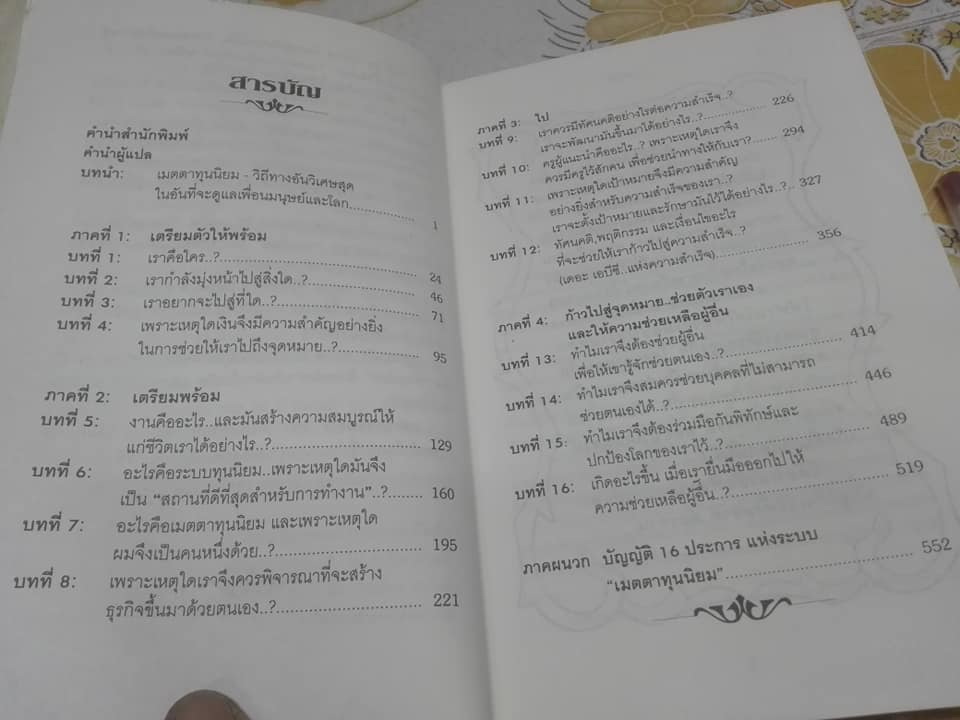 สารบัญ
คำนำสำนักพิมพ์
คำนำผู้แปล
บทนำ: เมตตาทุนนิยม - วิถีทางอันวิเศษสุด
ในอันที่จะดูแลเพื่อนมนุษย์และโลก................ 1
ภาคที่ 1: เตรียมตัวให้พร้อม
บทที่ 1: เราคือใคร..?................ 24
บทที่ 2: เรากำลังมุ่งหน้าไปสู่สิ่งใด..?................ 46
บทที่ 3: เราอยากจะไปสู่ที่ใด..?................ 71
บทที่ 4: เพราะเหตุใดเงินจึงมีความสำคัญอย่างยิ่ง
ในการช่วยให้เราไปถึงจุดหมาย..?................ 95
ภาคที่ 2: เตรียมพร้อม
บทที่ 5: งานคืออะไร..และมันสร้างความสมบูรณ์ให้
แก่ชีวิตเราได้อย่างไร..?................ 129
บทที่ 6: อะไรคือระบบทุนนิยม..เพราะเหตุใดมันจึง
เป็น “สถานที่ดีที่สุดสำหรับการทำงาน”..?........ 160
บทที่ 7: อะไรคือเมตตาทุนนิยม และเพราะเหตุใด
ผมจึงเป็นคนหนึ่งด้วย..?................ 195
บทที่ 8: เพราะเหตุใดเราจึงควรพิจารณาที่จะสร้าง
ธุรกิจขึ้นมาด้วยตนเอง..?................ 221
ภาคที่ 3: ไป
บทที่ 9: เราควรมีทัศนคติอย่างไรต่อความสำเร็จ..?
เราจะพัฒนามันขึ้นมาได้อย่างไร..?................ 226
บทที่ 10: ครูผู้แนะนำคืออะไร..? เพราะเหตุใดเราจึง
ควรมีครูไว้สักคน เพื่อช่วยนำทางให้กับเรา? 294
บทที่ 11: เพราะเหตุใดเป้าหมายจึงมีความสำคัญ
อย่างยิ่งสำหรับความสำเร็จของเรา..?
เราจะตั้งเป้าหมายและรักษามันไว้ได้อย่างไร..?.. 327
บทที่ 12: ทัศนคติ,พฤติกรรม และเงื่อนไขอะไร
ที่จะช่วยให้เราก้าวไปสู่ความสำเร็จ..?
(เดอะ เอบีซี..แห่งความสำเร็จ)................ 356
ภาคที่ 4: ก้าวไปสู่จุดหมาย..ช่วยตัวเราเอง
และให้ความช่วยเหลือผู้อื่น
บทที่ 13: ทำไมเราจึงต้องช่วยผู้อื่น
เพื่อให้เขารู้จักช่วยตนเอง..?................ 414
บทที่ 14: ทำไมเราจึงสมควรช่วยบุคคลที่ไม่สามารถ
ช่วยตนเองได้..?................ 446
บทที่ 15: ทำไมเราจึงต้องร่วมมือกันพิทักษ์และ
ปกป้องโลกของเราไว้..?................ 489
บทที่ 16: เกิดอะไรขึ้น เมื่อเรายื่นมือออกไปให้
ความช่วยเหลือผู้อื่น..?................ 519
ภาคผนวก บัญญัติ 16 ประการ แห่งระบบ
“เมตตาทุนนิยม”................ 552